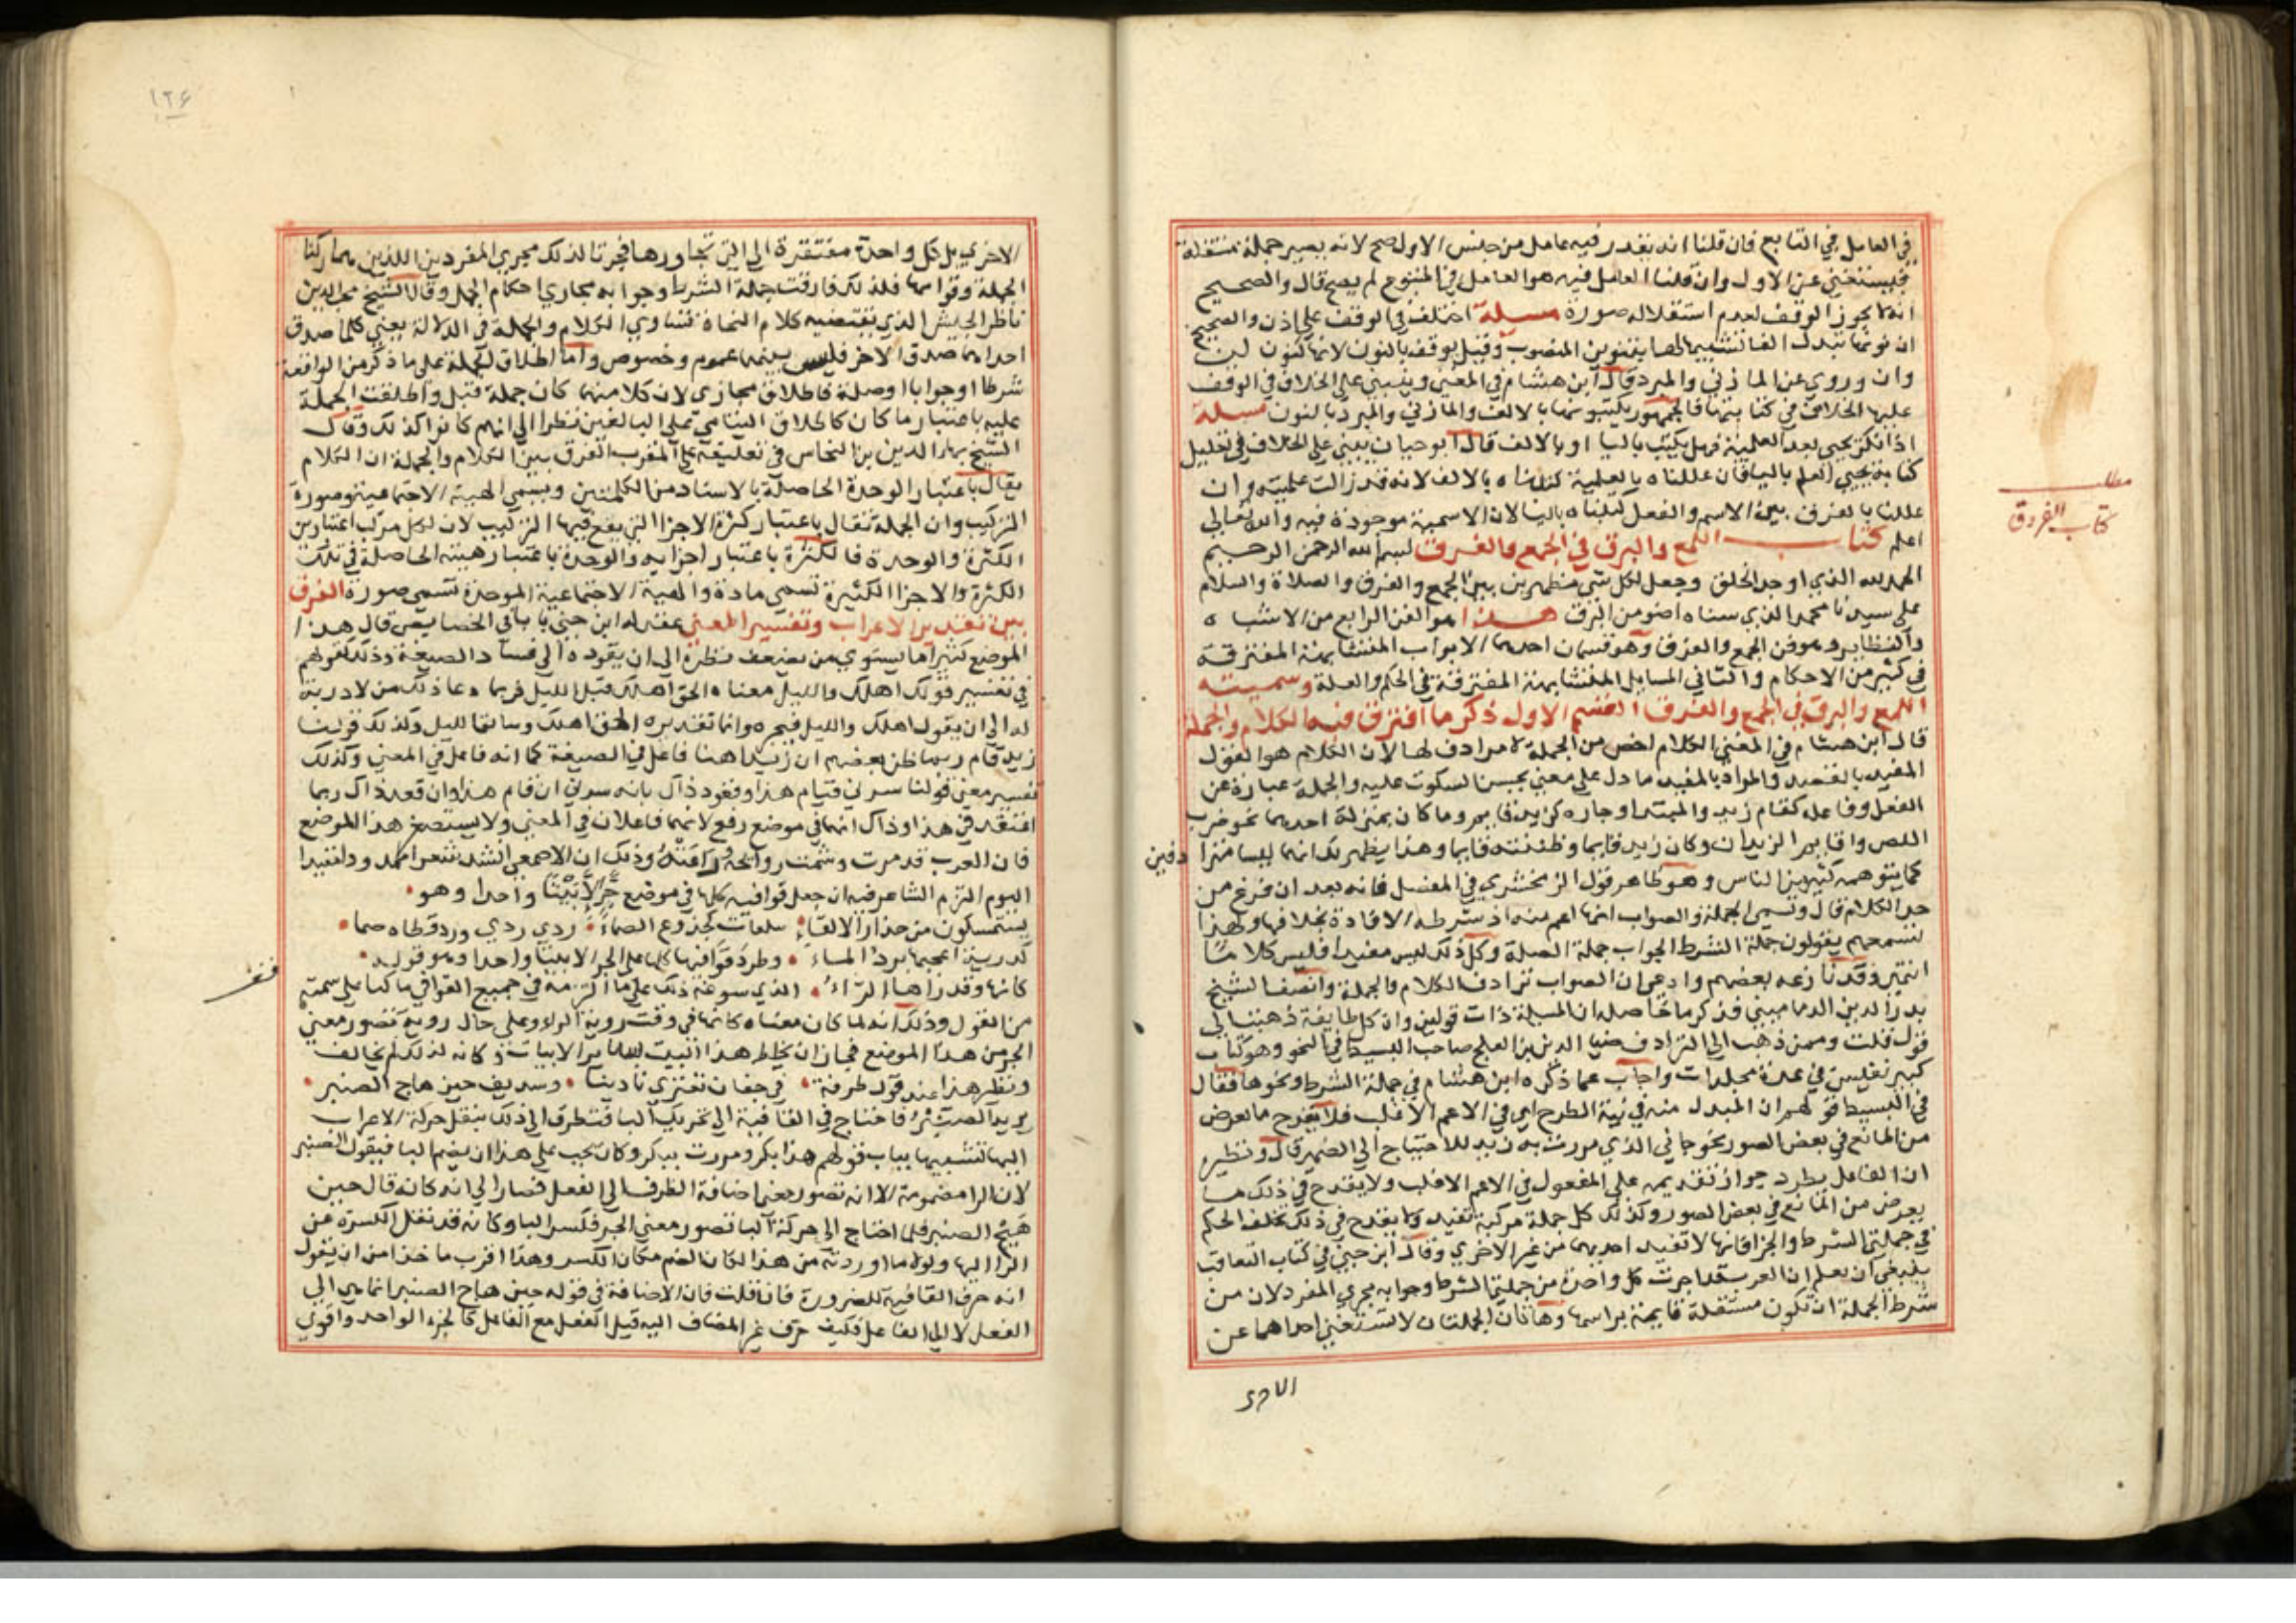 في العامل في التابع فان قلنا انه يقدر فيه عامل من جنس الاول صح لانه يصير جملة مستقلة
فيستغني عن الاول وان قلنا العامل فيه هو العامل في المتبوع لم يصح قال والصحيح
انه لا يجوز الوقف لعدم استقلاله صورة مسيلة اختلف في الوقف على اذن والصحيح
ان نونها تبدل الفا تشبيها لها بتنوين المنصوب وقيل يوقف بالنون لانها كنون لن
وان وروي عن المازني والمبرد قال ابن هشام في المغني وينبني على الخلاف في الوقف
عليها الخلاف في كتابتها فالجمهور يكتبونها بالالف والمازني والمبرد بالنون مسيلة
اذا نكر يحيي بعد العلمية فهل يكتب باليا او بالالف قال ابو حيان يبني على الخلاف في تعليل
كتابة يحيي العلم باليا فان عللناه بالعلمية كتبناه بالالف لانه قد زالت علميته وان
عللنا بالفرق بين الاسم والفعل كتبناه باليا لان الاسمية موجودة فيه والله تعالى
اعلم كتاب اللمع والبرق في الجمع والفرق بسم الله الرحمن الرحيم
الحمد لله الذي اوجد الخلق وجعل لكل شي مظهرين بين الجمع والفرق والصلاة والسلام
على سيدنا محمد الذي سناه اضو من البرق هذا هو الفن الرابع من الاشباه
والنظاير وهو فن الجمع والفرق وهو قسمان احدهما الابواب المتشابهة المفترقة
في كثير من الاحكام والثاني المسايل المتشابهة المفترقة في الحكم والعلة وسميته
اللمع والبرق في الجمع والفرق القسم الاول ذكر ما افترق فيه الكلام والجملة
قال ابن هشام في المغني الكلام اخص من الجملة لا مرادف لها لان الكلام هو القول
المفيد بالقصد والمراد بالمفيد ما دل على معنى يحسن السكوت عليه والجملة عبارة عن
الفعل وفاعله كقام زيد والمبتدا وخبره كزيد قايم وما كان بمنزلة احدهما نحو ضرب
اللص واقايم الزيدان وكان زيد قايما وظننته قايما وهذا يظهر لك انهما ليسا مترا دفين
كما يتوهمه كثير من الناس وهو ظاهر قول الزمخشري في المفصل فانه بعد ان فرغ من
حد الكلام قال وتسمى الجملة والصواب انها اعم منه اذ شرطه الافادة بخلافها ولهذا
تسمعهم يقولون جملة الشرط الجواب جملة الصلة وكل ذلك ليس مفيدا فليس كلاما
انتهى وقد نازعه بعضهم وادعى ان الصواب ترادف الكلام والجملة وانصف الشيخ
بدر الدين الدماميني فذكر ما حاصله ان المسيلة ذات قولين وان كل طايفة ذهبت الى
قول قلت وممن ذهب الى الترادف ضيا الدين بن العلج صاحب البسيط في النحو وهو كتاب
كبير نفيس في عدة مجلدات واجاب عما ذكره ابن هشام في جملة الشرط ونحوها فقال
في البسيط قولهم ان المبدل منه في نية الطرح اي في الاعم الاغلب فلا يقدح ما يعرض
من المانع في بعض الصور نحو جاني الذي مررت به زيد للاحتياج الى الضمير قال ونظيره
ان الفاعل يطرد جواز تقديمه على المفعول في الاعم الاغلب ولا يقدح في ذلك ما
يعرض من المانع في بعض الصور وكذلك كل جملة مركبة تفيد ولا يقدح في ذلك تخلف الحكم
في جملتي الشرط والجزا فانها لا تفيد احديهما من غير الاخرى وقال ابن جني في كتاب التعاقب
ينبغي ان يعلم ان العرب قد اجرت كل واحدة من جملتي الشرط وجوابه مجرى المفرد لان من
شرط الجملة ان تكون مستقلة قايمة براسها وهاتان الجملتان لا تستغني احداهما عن
الاخرى
مطلب
كتاب الفروق
١٢٤
الاخرى بل كل واحدة مفتقرة الى التي تجاورها فجرتا لذلك مجرى المفردين اللذين هما ركنا
الجملة وقوامها فلذلك فارقت جملة الشرط وجوابه مجاري احكام الجمل وقال الشيخ محب الدين
ناظر الجيش الذي يقتضيه كلام النحاة تساوي الكلام والجملة في الدلالة يعني كلما صدق
احدهما صدق الاخر فليس بينهما عموم وخصوص واما اطلاق الجملة على ما ذكر من الواقعة
شرطا او جوابا او صلة فاطلاق مجازي لان كلا منهما كان جملة قبل واطلقت الجملة
عليه باعتبار ما كان كاطلاق اليتامى على البالغين نظرا الى انهم كانوا كذلك وقال
الشيخ بهاء الدين بن النحاس في تعليقه على المقرب الفرق بين الكلام والجملة ان الكلام
يقال باعتبار الوحدة الحاصلة بالاسناد من الكلمتين ويسمى الهيئة الاجتماعية وصورة
التركيب وان الجملة تقال باعتبار كثرة الاجزا التي يقع فيها التركيب لان لكل مركب اعتبارين
الكثرة والوحدة فالكثرة باعتبار اجزايه والوحدة باعتبار هيئته الحاصلة في تلك
الكثرة والاجزا الكثيرة تسمى مادة والهيئة الاجتماعية الموحدة تسمى صورة الفرق
بين تقدير الاعراب وتفسير المعنى عقد له ابن جني بابا في الخصايص قال هذا
الموضع كثيرا ما يستهوي من يضعف نظره الى ان يقوده الى فساد الصيغة وذلك كقولهم
في تفسير قولك اهلك والليل معناه الحق اهلك قبل الليل فربما دعا ذلك من لا دربة
له الى ان يقول اهلك والليل فيجره وانما تقديره الحق اهلك وسابق الليل وكذلك قولنا
زيد قام ربما ظن بعضهم ان زيدا هنا فاعل في الصيغة كما انه فاعل في المعنى وكذلك
تفسير معنى قولنا سرني قيام هذا وقعود ذاك بانه سرني ان قام هذا وان قعد ذاك ربما
اعتقد في هذا وذاك انهما في موضع رفع لانهما فاعلان في المعنى ولا يستصغر هذا الموضع
فان العرب قد مرت وشمت روايحه وراعته وذلك ان الاصمعي انشد شعرا ممدودا مقيدا
اليوم التزم الشاعر فيه ان جعل قوافيه كلها في موضع جر الا بيتا واحدا وهو
يستمسكون من حذار الالقاء • بتلعات كجذوع الصيصاء • ردي ردي ورد قطاة صما
كدرية اعجبها برد الماء • وطرد قوافيها كلها على الجر الا بيتا واحدا وهو قوله
كانها وقد راها الراءُ • الذي سوغه ذلك على ما التزمه في جميع القوافي ما كنا على سمته
من القول وذلك انه لما كان معناه كانها في وقت روية الراء وعلى حال رويته تصور معنى
الجر من هذا الموضع فجاز ان يخلط هذا البيت بساير الابيات وكانه لذلك لم يخالف
ونظير هذا عندي قول طرفة • في جفان تعتري نادينا • وسديف حين هاج الصنبر
يريد الصنبر فاحتاج في القافية الى تحريك البا فتطرق الى ذلك بنقل حركة الاعراب
اليها تشبيها بباب قولهم هذا بكر ومررت ببكر وكان يجب على هذا ان يضم البا فيقول الصنبر
لان الرا مضمومة الا انه تصور معنى اضافة الظرف الى الفعل فصار الى انه كانه قال حين
هيج الصنبر فلما احتاج الى حركة البا تصور معنى الجر فكسر البا وكانه قد نقل الكسرة عن
الرا اليها ولولا ما اوردته من هذا لكان الضم مكان الكسر وهذا اقرب ماخذا من ان يقول
انه حرف القافية للضرورة فان قلت فان الاضافة في قوله حين هاج الصنبر انما هي الى
الفعل لا الى الفاعل فكيف حرف غير المضاف اليه قيل الفعل مع الفاعل كالجزء الواحد واقوى